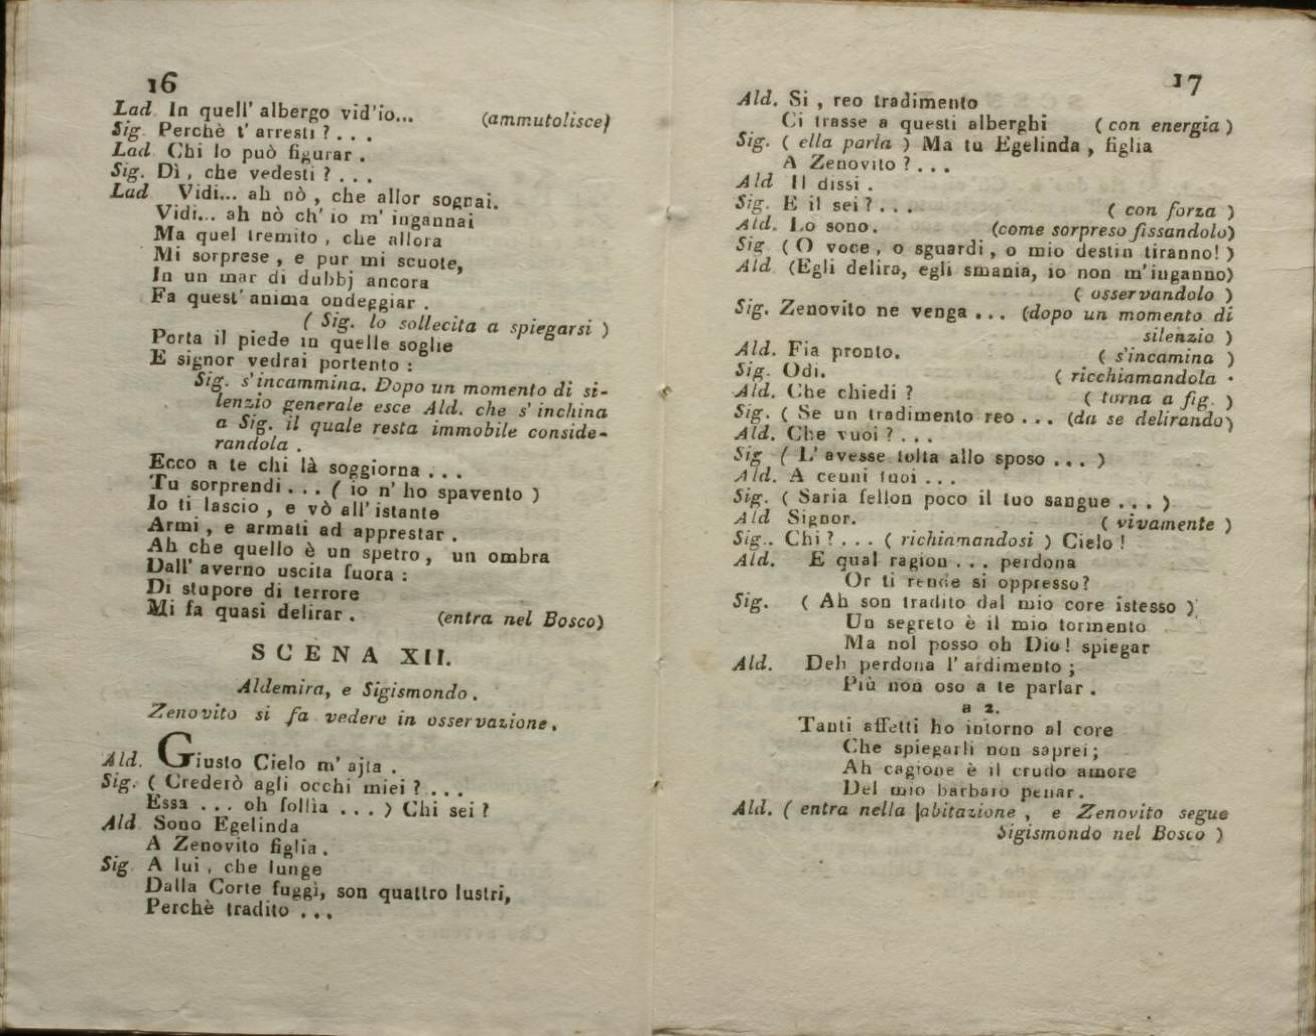 16
Lad. In quell' albergo vid'io... (ammutolisce)
Sig. Perchè t' arresti ? . . .
Lad. Chi lo può figurar .
Sig. Dì , che vedesti ? . . .
Lad. Vidi... ah nò , che allor sognai.
Vidi... ah nò ch' io m' ingannai
Ma quel tremito , che allora
Mi sorprese , e pur mi scuote,
In un mar di dubbj ancora
Fa quest' anima ondeggiar .
( Sig. lo sollecita a spiegarsi )
Porta il piede in quelle soglie
E signor vedrai portento :
Sig. s' incammina. Dopo un momento di si-
lenzio generale esce Ald. che s' inchina
a Sig. il quale resta immobile conside-
randola .
Ecco a te chi là soggiorna . . .
Tu sorprendi . . . ( io n' ho spavento )
Io ti lascio , e vò all' istante
Armi , e armati ad apprestar .
Ah che quello è un spetro , un ombra
Dall' averno uscita fuora :
Di stupore di terrore
Mi fa quasi delirar . (entra nel Bosco)
SCENA XII.
Aldemira, e Sigismondo .
Zenovito si fa vedere in osservazione .
Ald. Giusto Cielo m' ajta .
Sig. ( Crederò agli occhi miei ? . . .
Essa . . . oh follìa . . . ) Chi sei ?
Ald. Sono Egelinda
A Zenovito figlia .
Sig. A lui , che lunge
Dalla Corte fuggì, son quattro lustri,
Perchè tradito . . .
17
Ald. Si , reo tradimento
Ci trasse a questi alberghi ( con energia )
Sig. ( ella parla ) Ma tu Egelinda , figlia
A Zenovito ? . . .
Ald Il dissi .
Sig. E il sei ? . . . ( con forza )
Ald. Lo sono. (come sorpreso fissandolo)
Sig. ( O voce , o sguardi , o mio destin tiranno! )
Ald (Egli delira, egli smania, io non m'inganno)
( osservandolo )
Sig. Zenovito ne venga . . . (dopo un momento di
silenzio )
Ald. Fia pronto. ( s'incamina )
Sig. Odi. ( ricchiamandola .
Ald. Che chiedi ? ( torna a fig. )
Sig. ( Se un tradimento reo . . . (da se delirando)
Ald. Che vuoi ? . . .
Sig ( L' avesse tolta allo sposo . . . )
Ald. A cenni tuoi . . .
Sig. ( Saria fellon poco il tuo sangue . . . )
Ald Signor. ( vivamente )
Sig.. Chi ? . . . ( richiamandosi ) Cielo !
Ald. E qual ragion . . . perdona
Or ti rende si oppresso?
Sig. ( Ah son tradito dal mio core istesso )
Un segreto è il mio tormento
Ma nol posso oh Dio! spiegar
Ald. Deh perdona l' ardimento ;
Più non oso a te parlar .
a 2.
Tanti affetti ho intorno al core
Che spiegarli non saprei ;
Ah cagione è il crudo amore
Del mio barbaro penar .
Ald. ( entra nella abitazione , e Zenovito segue
Sigismondo nel Bosco )